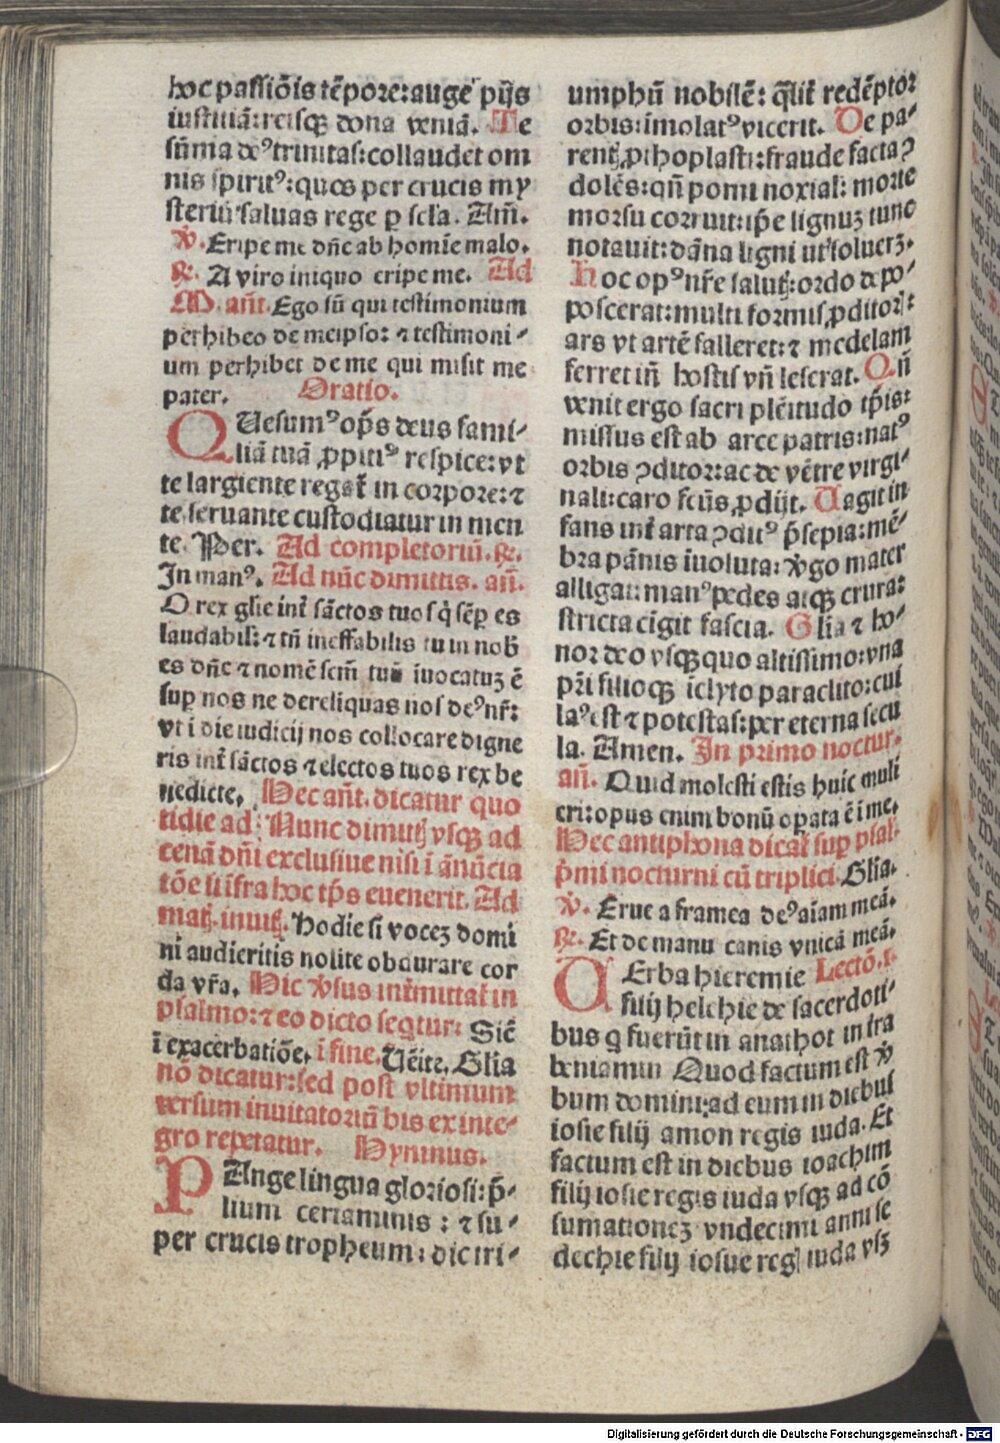 hoc passiõis tẽpore: auge pijs
iustitiã: reisqȝ dona veniã. Te
sũma deꝰ trinitas: collaudet om
nis spiritꝰ: quos per crucis my
steriũ saluas rege ꝑ scľa. Am̃.
℣. Eripe me dñe ab homĩe malo.
℟. A viro iniquo eripe me. Ad
M. añt. Ego sũ qui testimonium
perhibeo de meipso: ⁊ testimoni⸗
um perhibet de me qui misit me
pater. Oratio.
QUesumꝰ oṕs deus fami⸗
liã tuã ꝓpitiꝰ respice: vt
te largiente regat̃ in corpore: ⁊
te seruante custodiatur in men
te. Per. Ad completoriũ. ℟.
In manꝰ. Ad nũc dimittis. añ.
O rex glie int̃ sãctos tuos q̇ sẽꝑ es
laudabilis: ⁊ tñ ineffabilis tu in nob̃
es dñe ⁊ nomẽ scm̃ tuũ iuocatuȝ ẽ
suꝑ nos ne derelíquas nos deꝰ nr̃:
vt i die iudicij nos collocare digne
ris int̃ sãctos ⁊ electos tuos rex be
nedicte. Hec añt. dicatur quo
tidie ad: Nunc dimittꝭ vsqȝ ad
cenã dñi exclusiue nisi ĩ ãnũcia
tõe si ĩfra hoc tp̃s euenerit. Ad
matꝭ. inuitꝭ. Hodie si vocez domi
ni audieritis nolite obdurare cor
da vr̃a. Hic ℣sus int̃mittat̃ in
psalmo: ⁊ eo dicto seq̃tur: Sic̃
ĩ exacerbatiõe. i fine. Uẽite. Glia
nõ dicatur: sed post vltimum
versum inuitatoriũ bis ex inte⸗
gro repetatur. Hymnus.
PAnge lingua gloriosi: p̃⸗
lium certaminis: ⁊ su⸗
per crucis tropheum: dic tri⸗
umphũ nobilẽ: q̃lit̃ redẽptor
orbis: imolatꝰ vicerit. De pa⸗
rentꝭ ꝓthoplasti: fraude factaꝭ
dolẽs: qñ pomi noxial: morte
morsu corruit: ip̃e lignuȝ tunc
notauit: dãna ligni vt soluerȝ.
Hoc opꝰ nr̃e salutꝭ: ordo de po⸗
poscerat: multi formis ꝓditorꝭ:
ars vt artẽ falleret: ⁊ medelam
ferret iñ hostis vñ leserat. Qñ
venit ergo sacri plẽitudo tp̃is:
missus est ab arce patris: natꝰ
orbis ꝯditor: ac de vẽtre virgi⸗
nali: caro fcũs ꝓdijt. Uagit in
fans int̃ arta ꝯditꝰ p̃sepia: mẽ⸗
bra pãnis iuoluta: ℣go mater
alligat: manꝰ pedes atqȝ crura:
stricta cigit fascia. Glia ⁊ ho⸗
nor deo vsqȝquo altissimo: vna
pr̃i filioqȝ ĩclyto paraclito: cui
laꝰ est ⁊ potestas: per eterna secu
la. Amen. In primo noctur.
añ. Quid molesti estis huic muli
eri: opus enim bonũ oꝑata ẽ i me.
Hec antiphona dicat̃ suꝑ psal.
p̃mi nocturni cũ triplici. Glia.
℣. Erue a framea deꝰ aiam meã.
℟. Et de manu canis vnicã meã.
UErba hieremie Lectõ. i.
filij helchie de sacerdoti⸗
bus q̃ fuerũt in anathot in tra
beniamin Quod factum est ℣
bum domini: ad eum in diebus
iosie filij amon regis iuda. Et
factum est in diebus ioachim
filij iosie regis iuda vsqȝ ad cõ
sumationeȝ vndecimi anni se
dechie filij iosue regꝭ iuda vsȝ
Digitalisierung gefördert durch die Deutsche Forschungsgemeinschaft - DFG